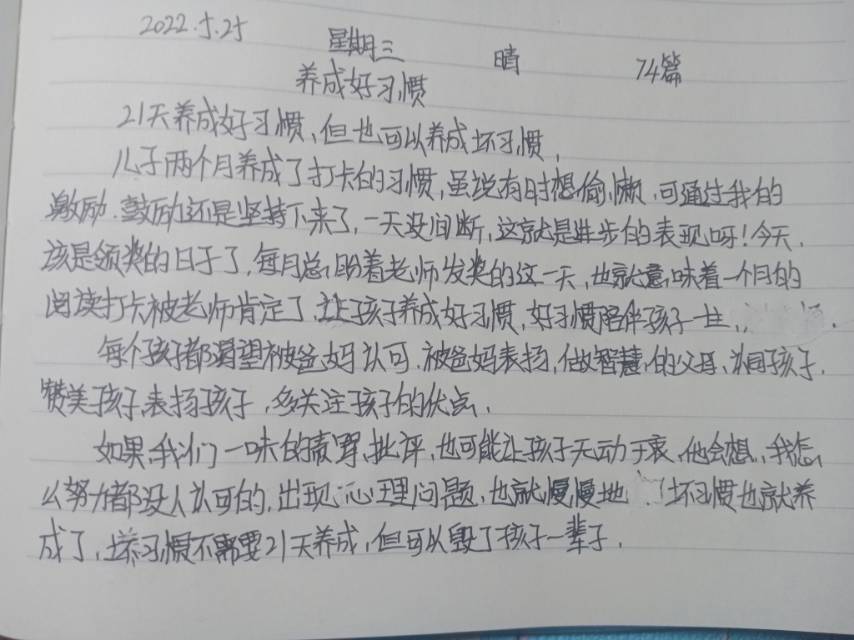 2022.5.25 星期三 晴 74篇
养成好习惯
21天养成好习惯,但也可以养成坏习惯,
儿子两个月养成了打卡的习惯,虽说有时想偷懒,可通过我的
激励.鼓励还是坚持下来了,一天没间断,这就是进步的表现呀!今天,
该是领奖的日子了,每月总盼着老师发奖的这一天,也就意味着一个月的
阅读打卡被老师肯定了,让孩子养成好习惯,好习惯陪伴孩子一生.
每个孩子都渴望被爸妈认可.被爸妈表扬,做智慧的父母、认同孩子.
赞美孩子.表扬孩子,多关注孩子的优点.
如果我们一味的责骂.批评,也可能让孩子无动于衷、他会想,我怎
么努力都没人认可的,出现心理问题,也就慢慢地 坏习惯也就养
成了,坏习惯不需要21天养成,但可以毁了孩子一辈子.